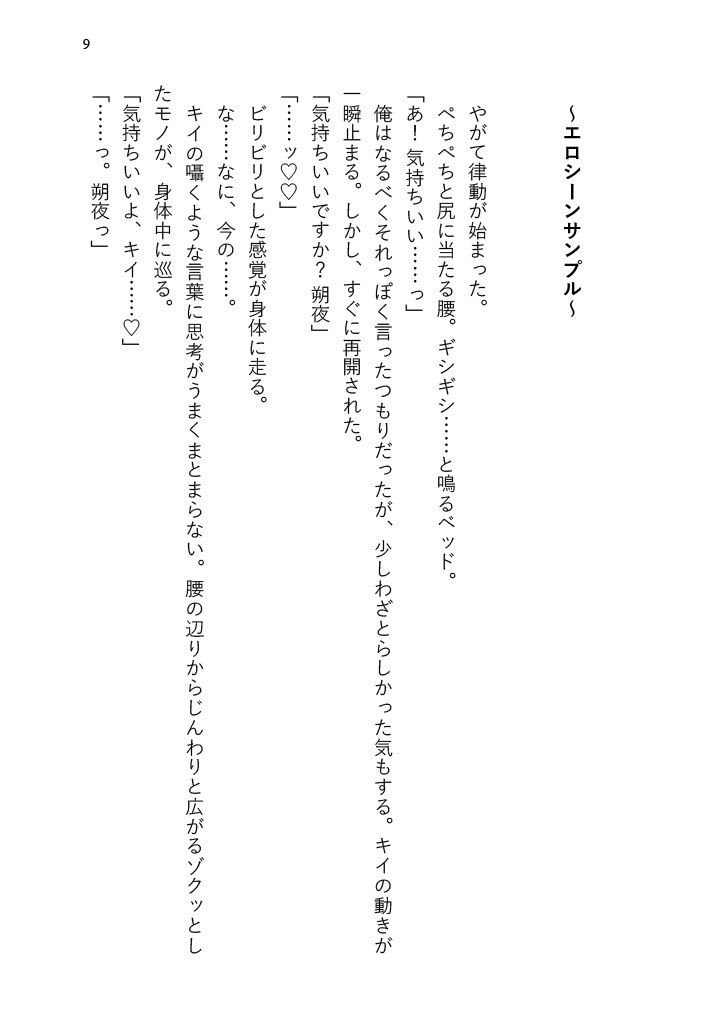 9
～エロシーンサンプル～
やがて律動が始まった。
ぺちぺちと尻に当たる腰。ギシギシ……と鳴るベッド。
「あ！ 気持ちいい……っ」
俺はなるべくそれっぽく言ったつもりだったが、少しわざとらしかった気もする。キイの動きが
一瞬止まる。しかし、すぐに再開された。
「気持ちいいですか？ 朔夜」
「……ッ♡♡」
ビリビリとした感覚が身体に走る。
な……なに、今の……。
キイの囁くような言葉に思考がうまくまとまらない。腰の辺りからじんわりと広がるゾクッとし
たモノが、身体中に巡る。
「気持ちいいよ、キイ……♡」
「……っ。朔夜っ」